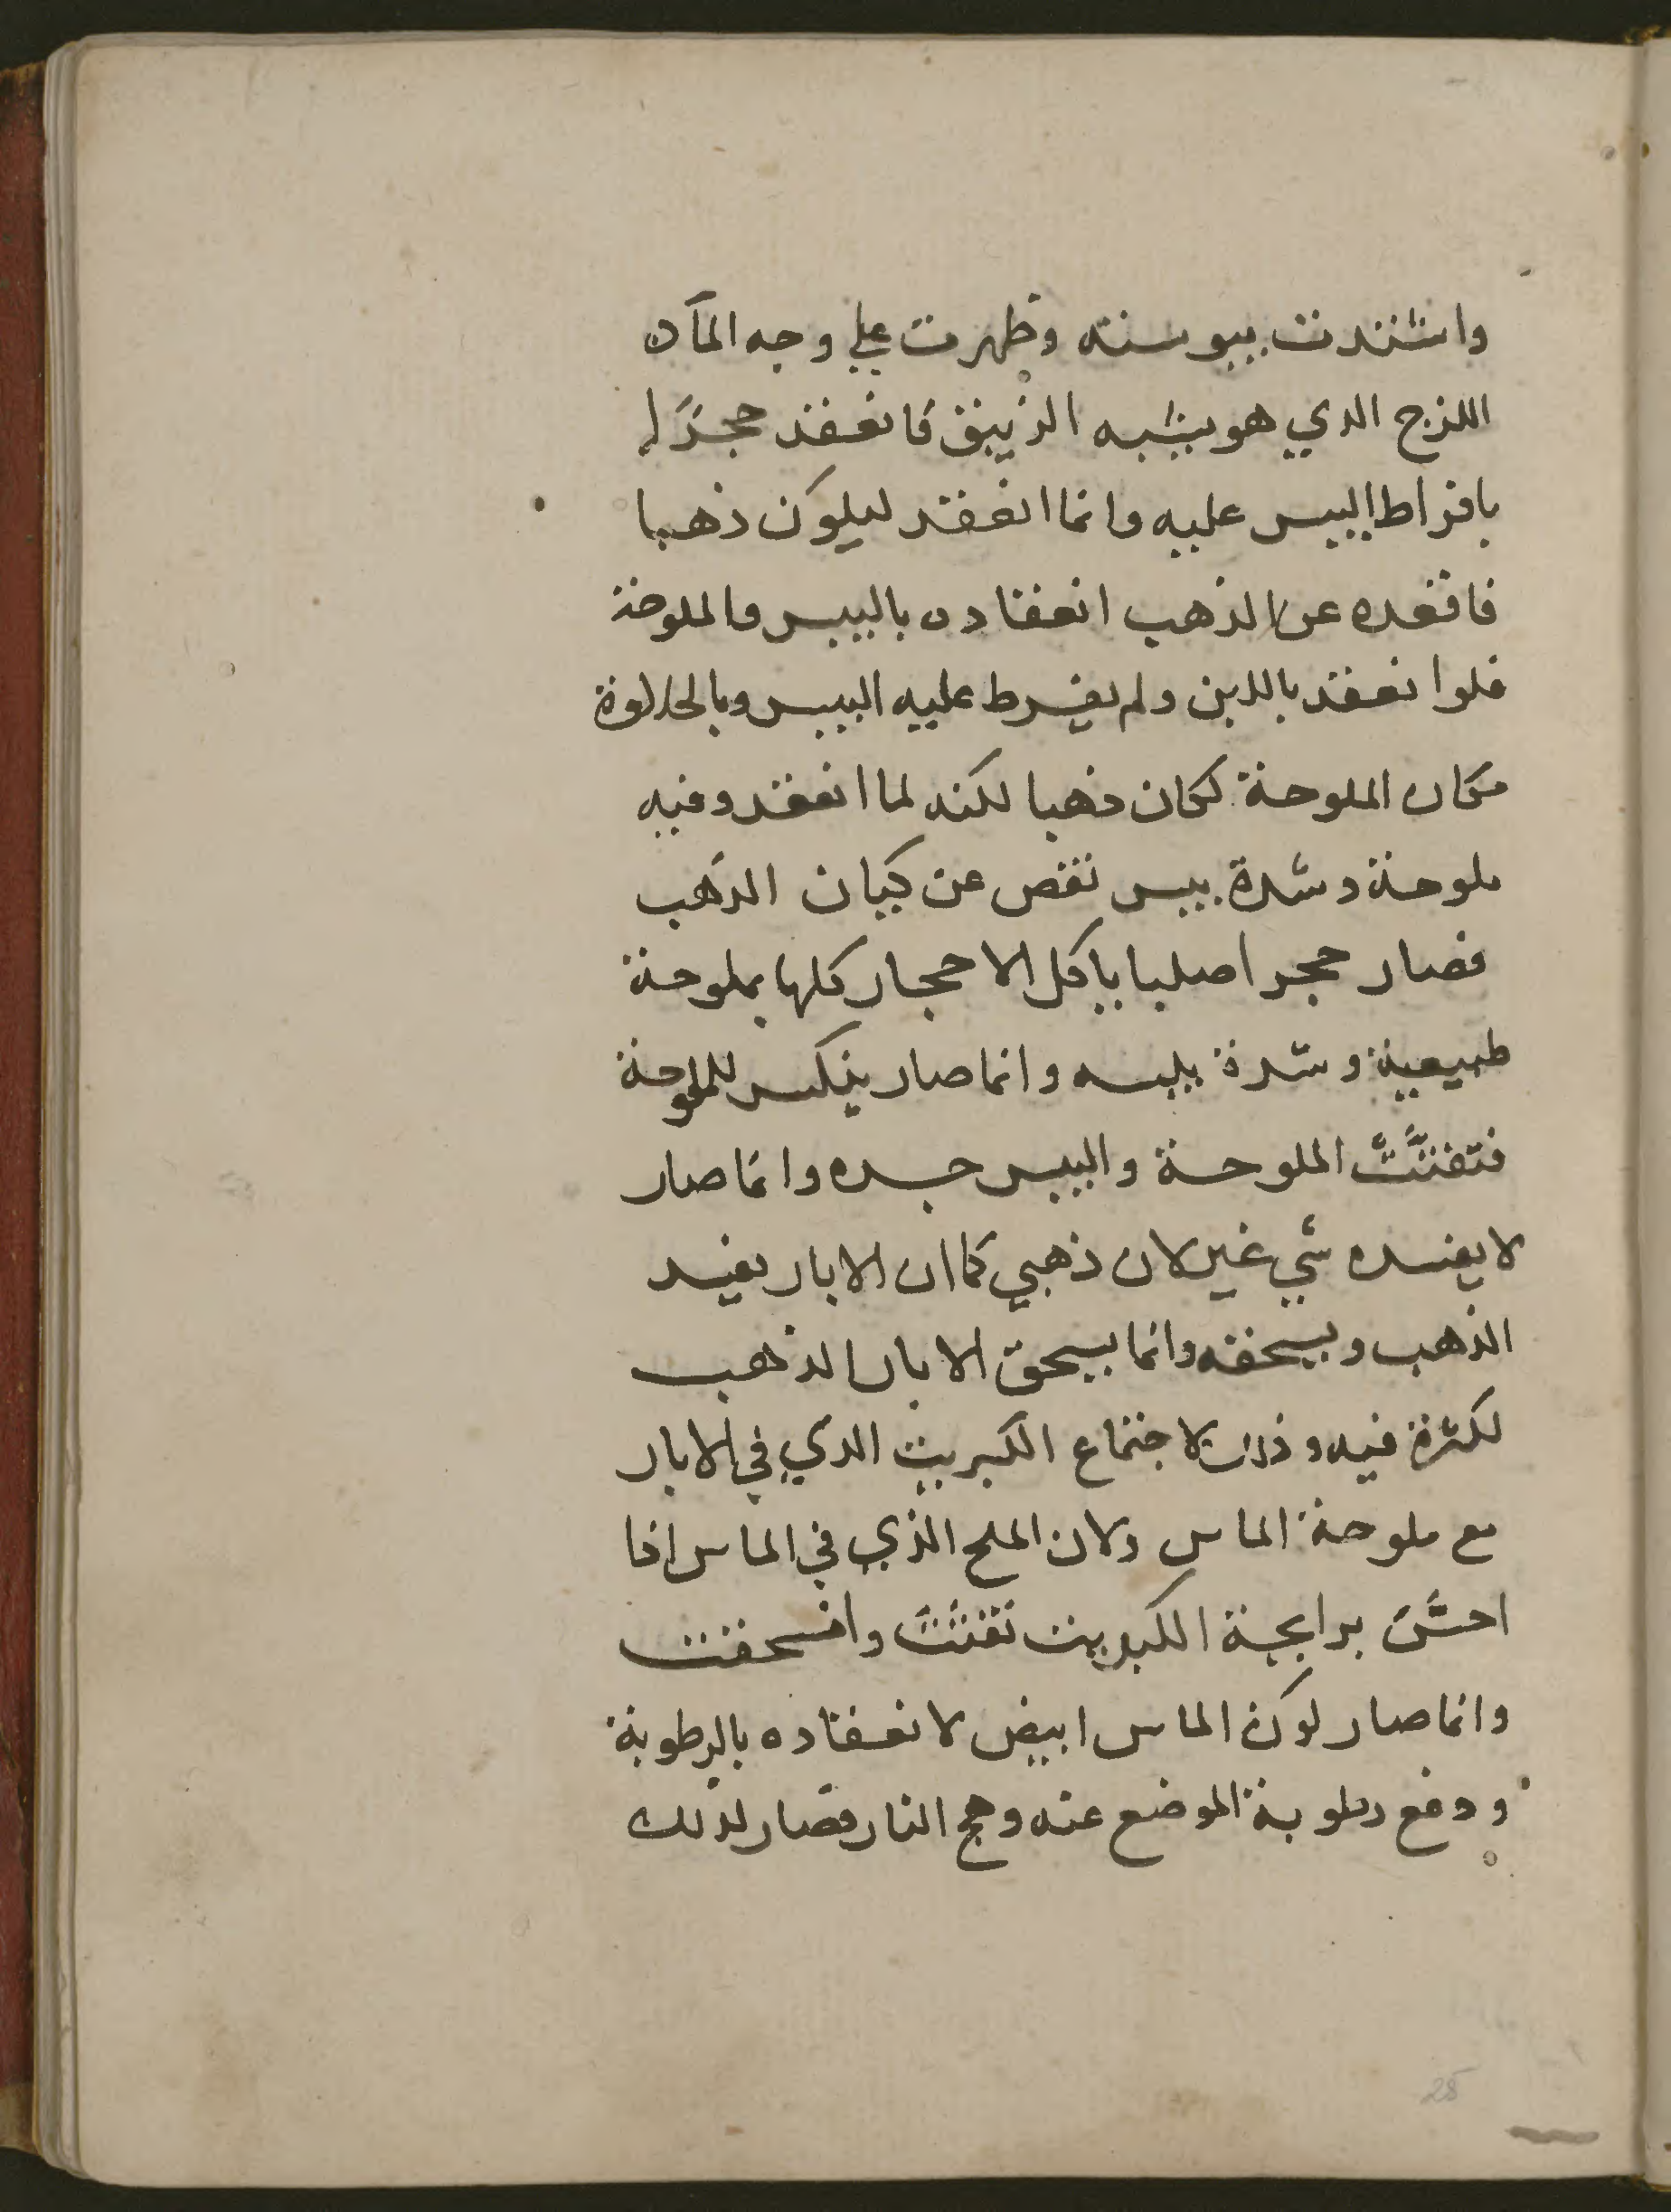 واشتدت يبوسته وظهرت علي وجه المآء
اللزج الدي هو يشبه الزيبق فانعقد حجرًا
بافراط اليبس عليه وانما انعقد ليكون ذهبا
فاقعده عن الذهب انعقاده باليبس والملوحة
فلوا نعقد باللين ولم يفرط عليه اليبس وبالحلاوة
مكان الملوحة لكان ذهبا لكنه لما انعقد وفيه
ملوحة وشدة يبس نقص عن كيان الدهب
فصار حجر اصلبا ياكل الاحجار كلها بملوحة
طبيعية وشدة يبسه وانما صار ينكسر للملوحة
فتفتَّتَ الملوحة واليبس جسده وانما صار
لا يفسده شي غير لان ذهبي كما ان الابار يفسد
الذهب ويسحقه وانما يسحق الابار الذهب
لكثرة فيه وذلك لاجتماع الكبريت الدي في الابار
مع ملوحة الماس ولان الملح الذي في الماس اذا
احسَّ برايحة الكبريت تفتَّتَ وانسحقت
وانما صار لون الماس ابيض لانعقاده بالرطوبة
ودفع رطوبة الموضع عنه وهج النار فصار لذلك
28